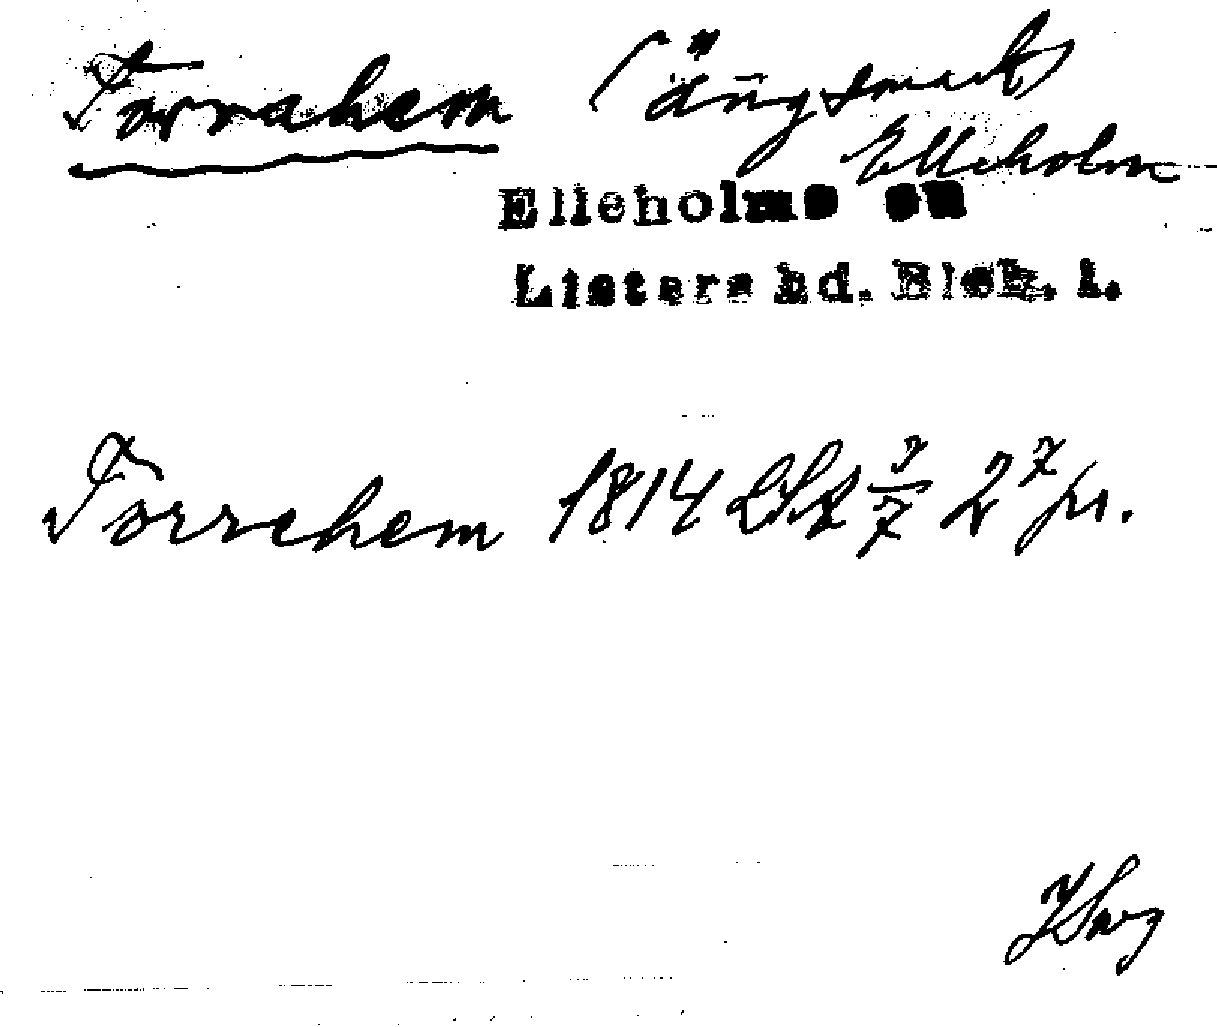 Torrahem (ängsmark)
Elleholm
Elleholms sn
Listers hd. Blek. l.
Torrehem 1814 LSA 7/7 2 7 pr.